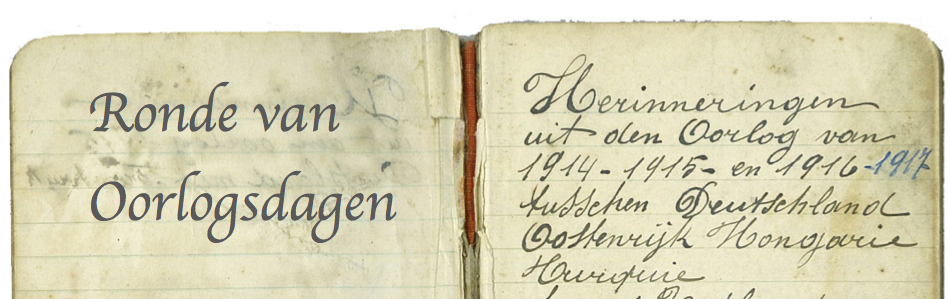 Ronde van
Oorlogsdagen
Herinneringen
uit den Oorlog van
1914 - 1915 - en 1916 - 1917
tusschen Deutschland
Oostenrijk Hongarie